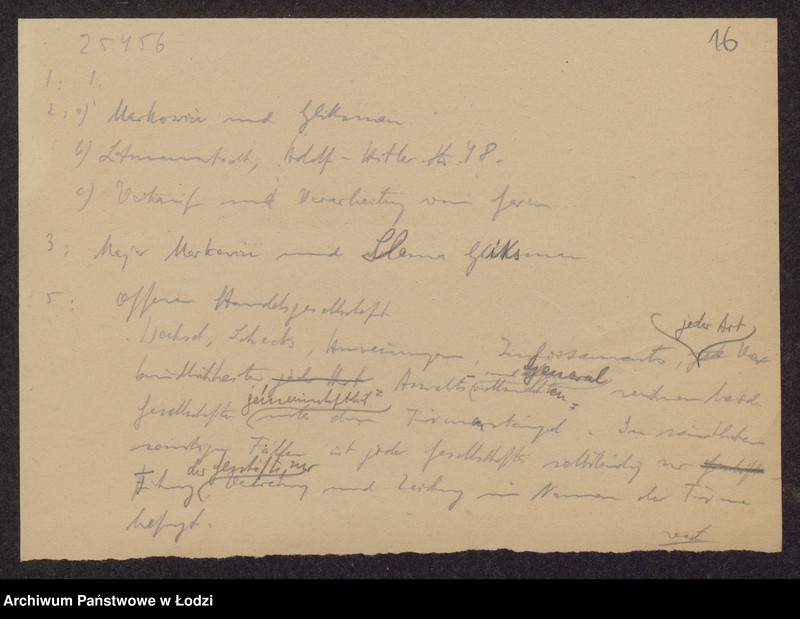 25456
16
1: 1.
2: a) Markowicz und Gliksman
b) Litzmannstadt, Adolf-Hitler-Str. 48.
c) Verkauf und Verarbeitung von Garn
3: Majer Markowicz und Szlama Gliksman
5: Offene Handelsgesellschaft
jeder Art
Wechsel, Schecks, Anweisungen, Indossaments, Ver
general
bindlichkeiten jeder Art Anwalts und vollmachten zeichnen beide
gemeinschaftlich
Gesellschafter unter dem Firmenstempel. In sämtlichen
sonstigen Fällen ist jeder Gesellschafter selbständig zur
der Geschäfte, zur
Führung Vertretung und Zeichnung im Namen der Firma
befugt.
Archiwum Państwowe w Łodzi